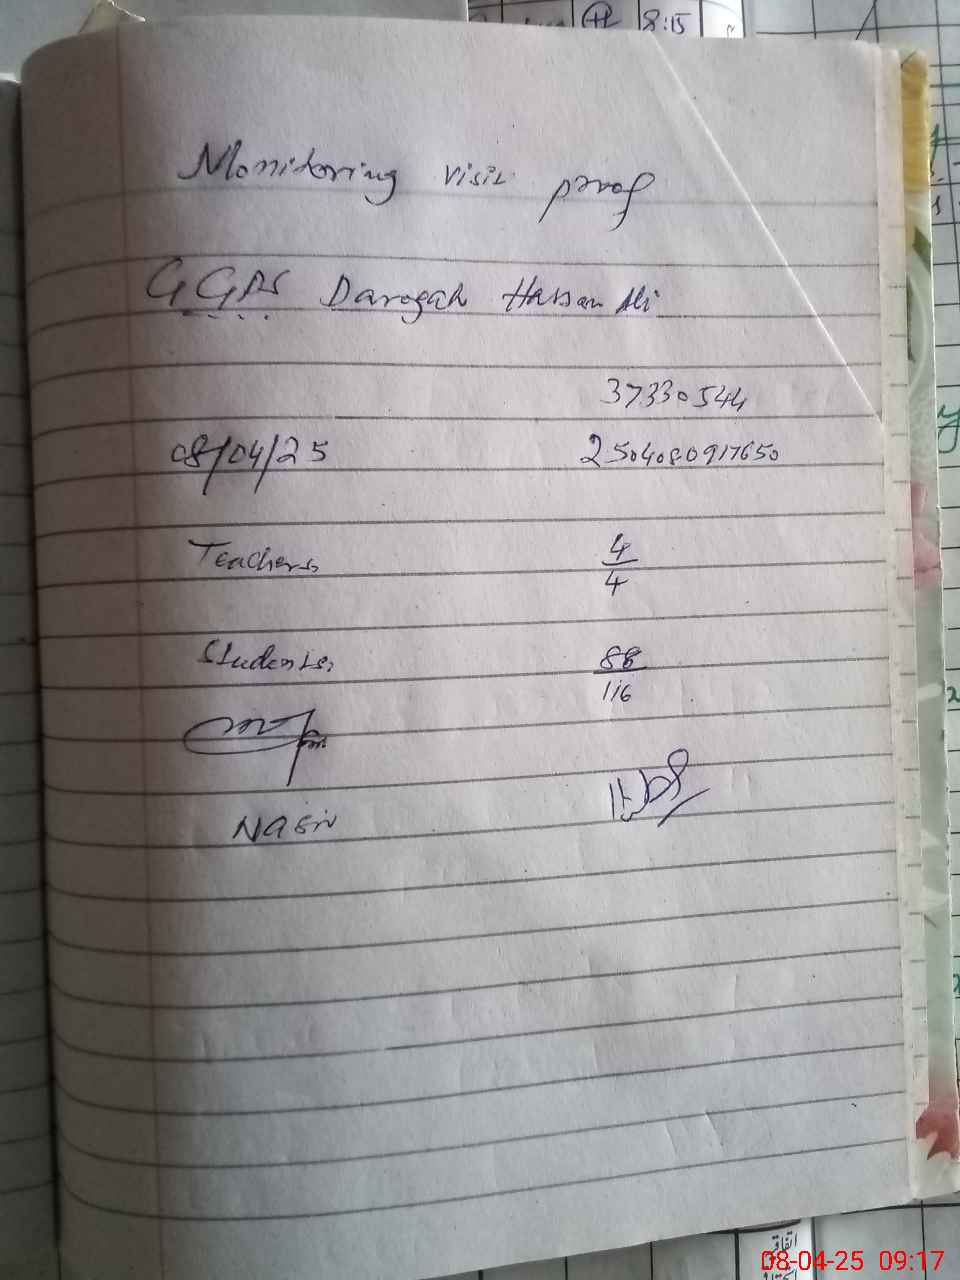 8:15
Monitoring visit proof
GGPS Darogah Hassan Ali
37330544
08/04/25 250408091765 0
Teachers 4/4
Students 88/116
Nasir
اتفاق
08-04-25 09:17